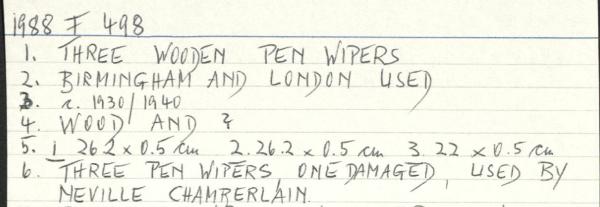 1988 F 498
1. THREE WOODEN PEN WIPERS
2. BIRMINGHAM AND LONDON USED
3. c. 1930/1940
4. WOOD AND ?
5. 1 26.2 x 0.5 cm 2. 26.2 x 0.5 cm 3. 22 x 0.5 cm
6. THREE PEN WIPERS, ONE DAMAGED, USED BY
NEVILLE CHAMBERLAIN.